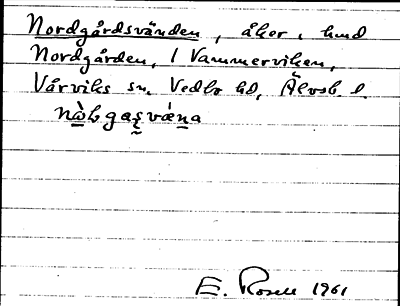 Nordgårdsvänden, åker, hmd
Nordgården, 1 Vammerviken,
Vårviks sn. Vedbo hd, Älvsb. l.
E. Rosell 1961